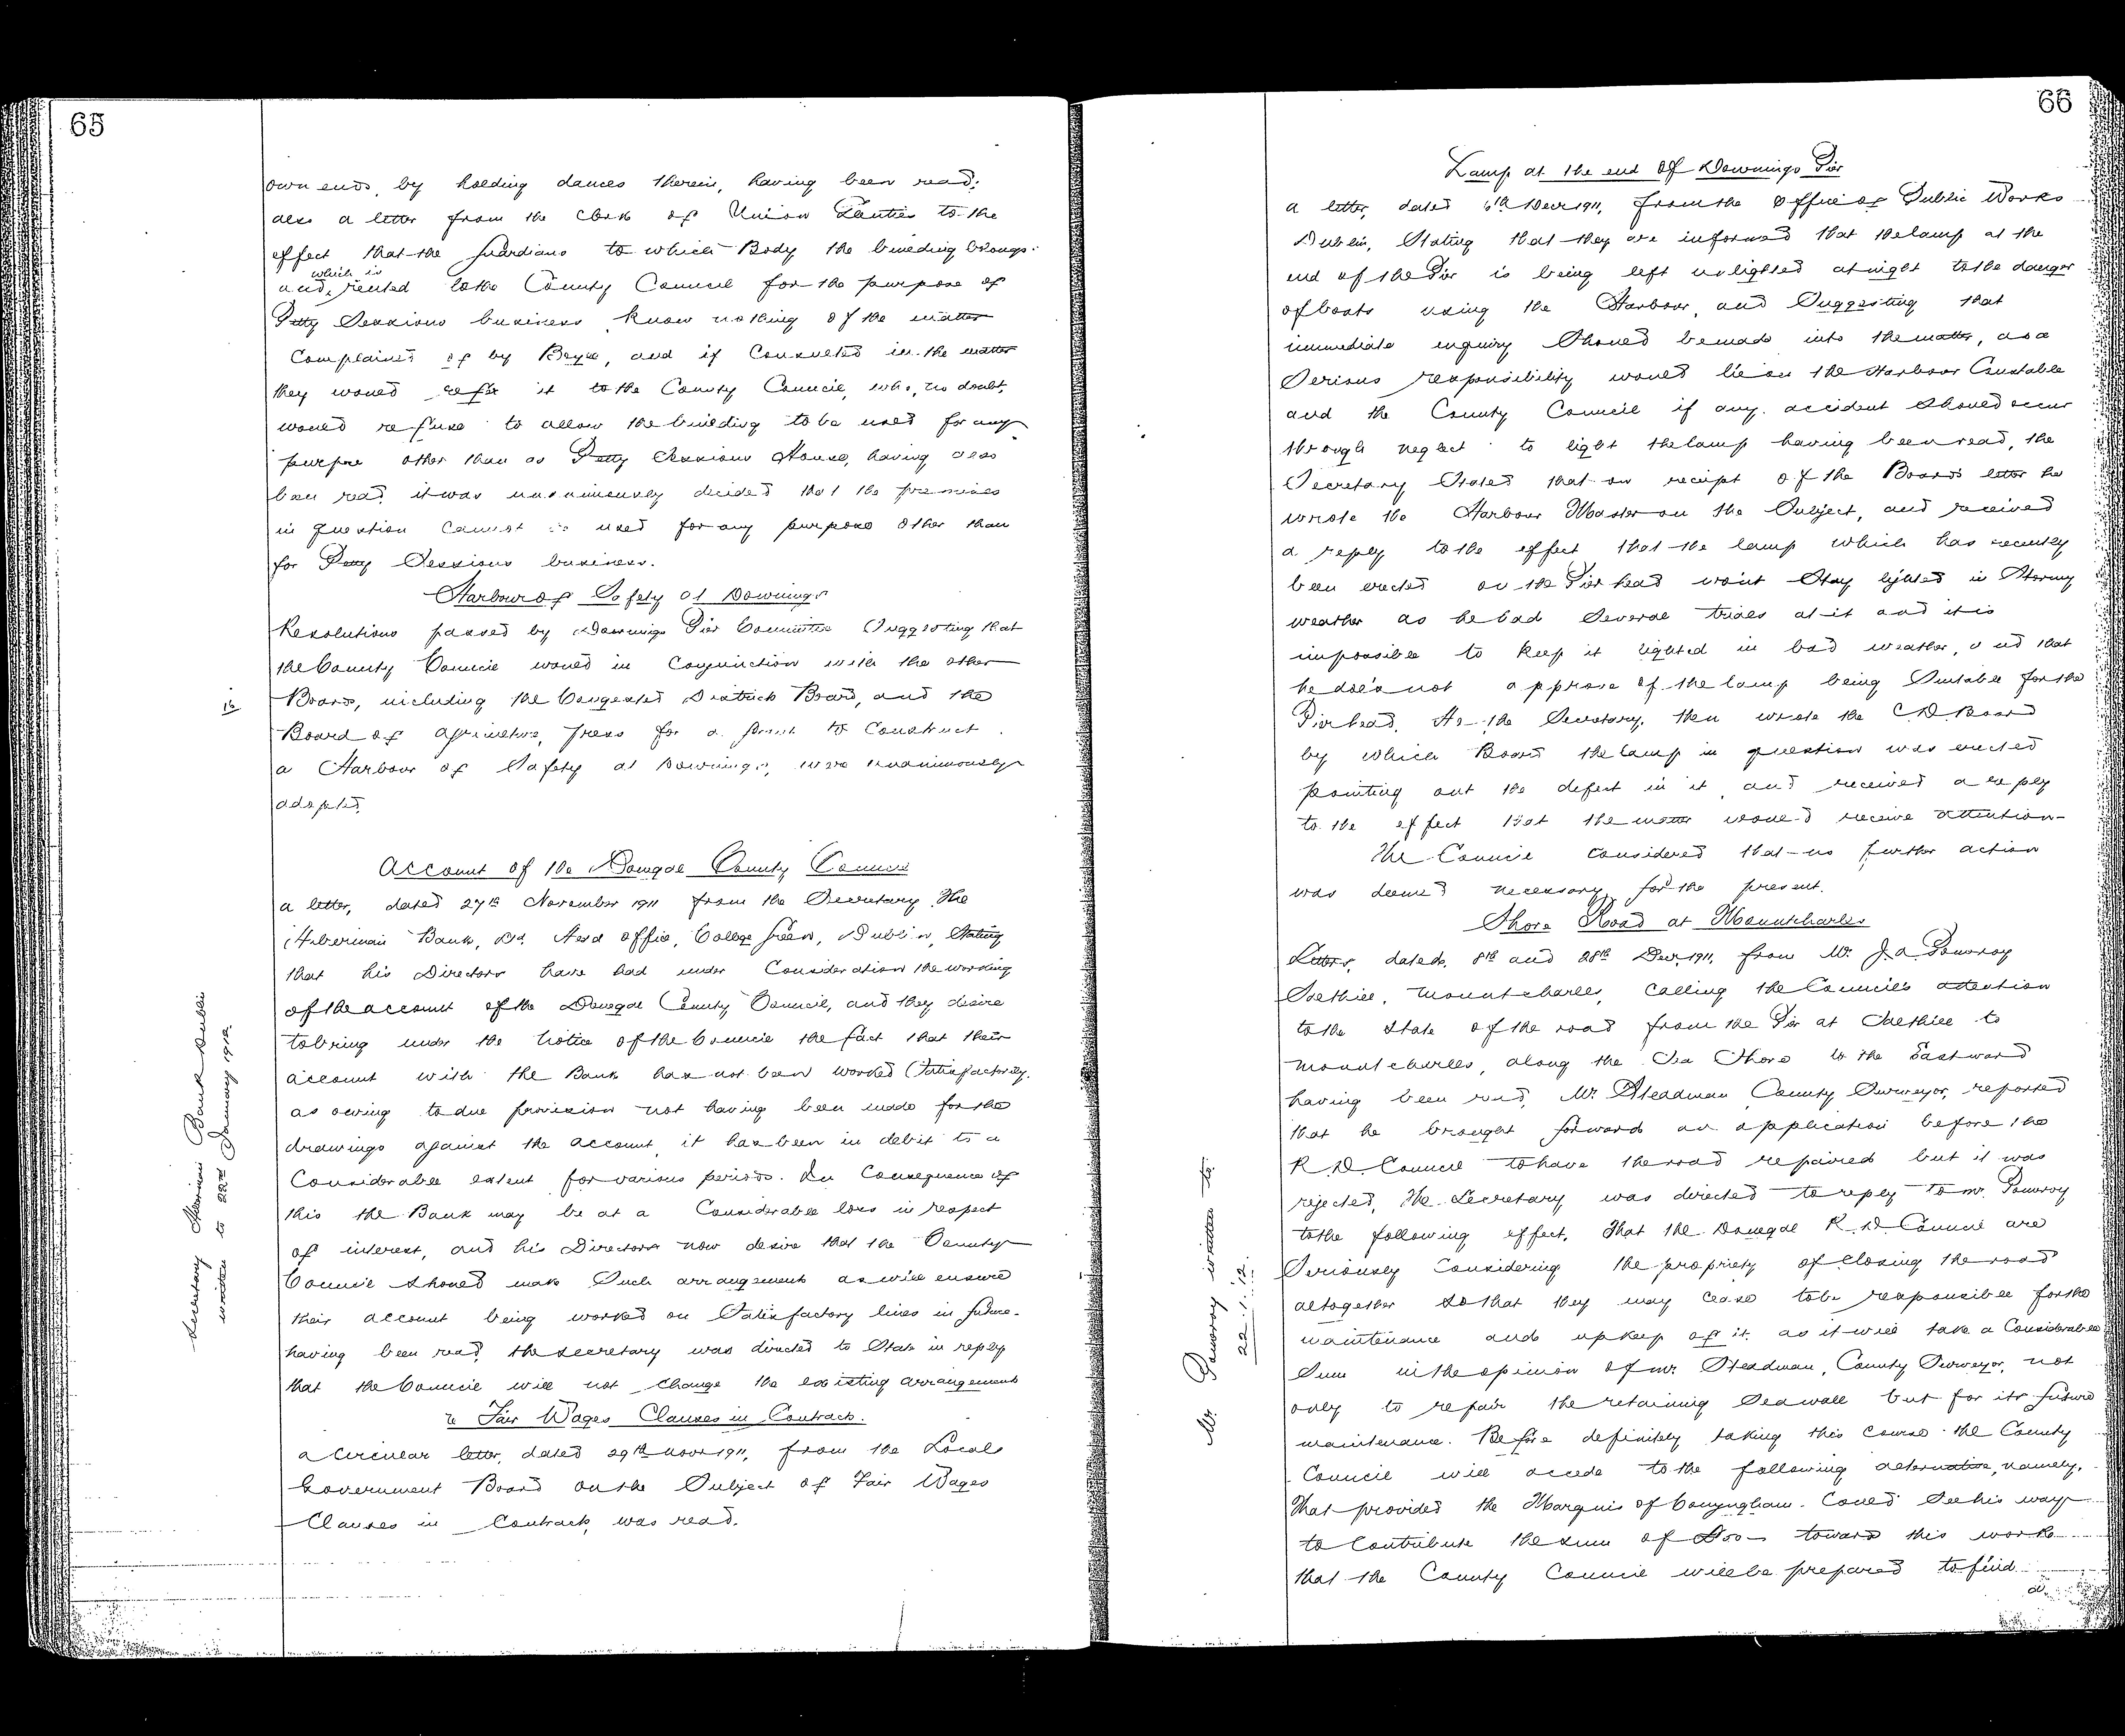 65
own ends, by holding dances therein, having been read;
also a letter from the Clerk of Union to the
effect that the Guardians to which Body the building belongs
and, which is rented to the County Council for the purpose of
Petty Sessions business know nothing of the matter
Complained of by Boyce, and if Consulted in the matter
they would refer it to the County Council, who, no doubt,
would refuse to allow the building to be used for any
purpose other than as Petty Sessions House, having also
been read it was unanimously decided that the premises
in question cannot be used for any purpose other than
for Petty Sessions business.
Harbour of Safety at Downings
Resolutions passed by Downings Pier Committee Suggesting that
the County Council would in Conjunction with the other
Boards, including the Congested Districts Board, and the
Board of Agriculture, press for a grant to Construct
a Harbour of Safety at Downings, were unanimously
adopted.
Account of the Donegal County Council
a letter, dated 27th November 1911 from the Secretary The
Hibernian Bank, Ld. Head office, College Green, Dublin, Stating
that his Directors have had under Consideration the working
of the account of the Donegal County Council, and they desire
to bring under the notice of the Council the fact that their
account with the Bank has not been worked Satisfactorily.
as owing to due provision not having been made for the
drawings against the account, it has been in debit to a
Considerable extent for various periods. In Consequence of
this the Bank may be at a Considerable loss in respect
of interest, and his Directors now desire that the County
Council should make Such arrangements as will ensure
their account being worked on Satisfactory lines in future.
having been read, the secretary was directed to State in reply
that the Council will not change the existing arrangements
Secretary Hibernian Bank Dublin
written to 22nd January 1912
re Fair Wages Clauses in Contracts.
a Circular letter, dated 29th Novr 1911, from the Local
Government Board on the Subject of Fair Wages
Clauses in Contracts, was read.
66
Lamp at the end of Downings Pier
a letter, dated 6th Decr 1911, from the Office of Public Works
Dublin, Stating that they are informed that the lamp at the
end of the Pier is being left unlighted at night to the danger
of boats using the Harbour, and Suggesting that
immediate enquiry Should be made into the matter, as a
Serious responsibility would lie on the Harbour Constable
and the County Council if any accident Should occur
through neglect to light the lamp having been read, the
Secretary Stated that on receipt of the Board's letter he
wrote the Harbour Master on the Subject, and received
a reply to the effect that the lamp which has recently
been erected on the Pier head won't Stay lighted in Stormy
weather as he had Several trials at it and it is
impossible to keep it lighted in bad weather, and that
he does not approve of the lamp being Suitable for the
Pier head. He, the Secretary, then wrote the C D Board
by which Board the lamp in question was erected
pointing out the defect in it, and received a reply
to the effect that the matter would receive attention
The Council considered that no further action
was deemed necessary for the present.
Shore Road at Mountcharles
Letters, dated, 8th and 28th Decr 1911, from Mr. J. A. Pomroy
Salthill, Mountcharles, Calling the Council's attention
to the State of the road from the Pier at Salthill to
Mountcharles, along the Sea Shore to the Eastward
having been read, Mr. Steadman County Surveyor, reported
that he brought forward an application before the
R. D. Council to have the road repaired but it was
rejected, The Secretary was directed to reply to Mr. Pomroy
to the following effect, That the Donegal R. D. Council are
Seriously Considering the propriety of closing the road
altogether so that they may cease to be responsible for the
maintenance and upkeep of it, as it will take a Considerable
Sum in the opinion of Mr. Steadman, County Surveyor, not
only to repair the retaining Sea wall but for its future
maintenance. Before definitely taking this course the County
Council will accede to the following alternative, namely,
That provided the Marquis of Conyngham Could See his way
to Contribute the sum of toward this work
that the County Council will be prepared to find
Mr. Pomroy written to
22.1.'12.